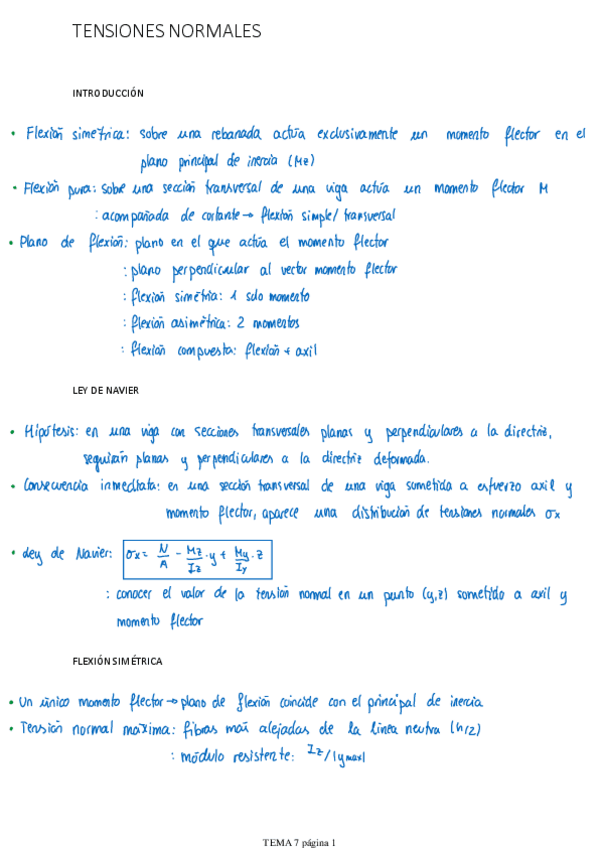 TENSIONES NORMALES
INTRODUCCIÓN
• Flexión simétrica: sobre una rebanada actúa exclusivamente un momento flector en el
plano principal de inercia (Mz)
• Flexión pura: sobre una sección transversal de una viga actúa un momento flector M
: acompañada de cortante → flexión simple/transversal
• Plano de flexión: plano en el que actúa el momento flector
: plano perpendicular al vector momento flector
: flexión simétria: 1 solo momento
: flexión asimétrica: 2 momentos
: flexión compuesta: flexión + axil
LEY DE NAVIER
• Hipótesis: en una viga con secciones transversales planas y perpendiculares a la directriz,
seguirán planas y perpendiculares a la directriz deformada.
• Consecuencia inmediata: en una sección transversal de una viga sometida a esfuerzo axil y
momento flector, aparece una distribución de tensiones normales σx
• Ley de Navier: σx = N/A - Mz/Iz · y + My/Iy · z
: conocer el valor de la tensión normal en un punto (y,z) sometido a axil y
momento flector
FLEXIÓN SIMÉTRICA
• Un único momento flector → plano de flexión coincide con el principal de inercia
• Tensión normal máxima: fibras más alejadas de la línea neutra (h/2)
: módulo resistente: Iz/|ymax|
TEMA 7 página 1